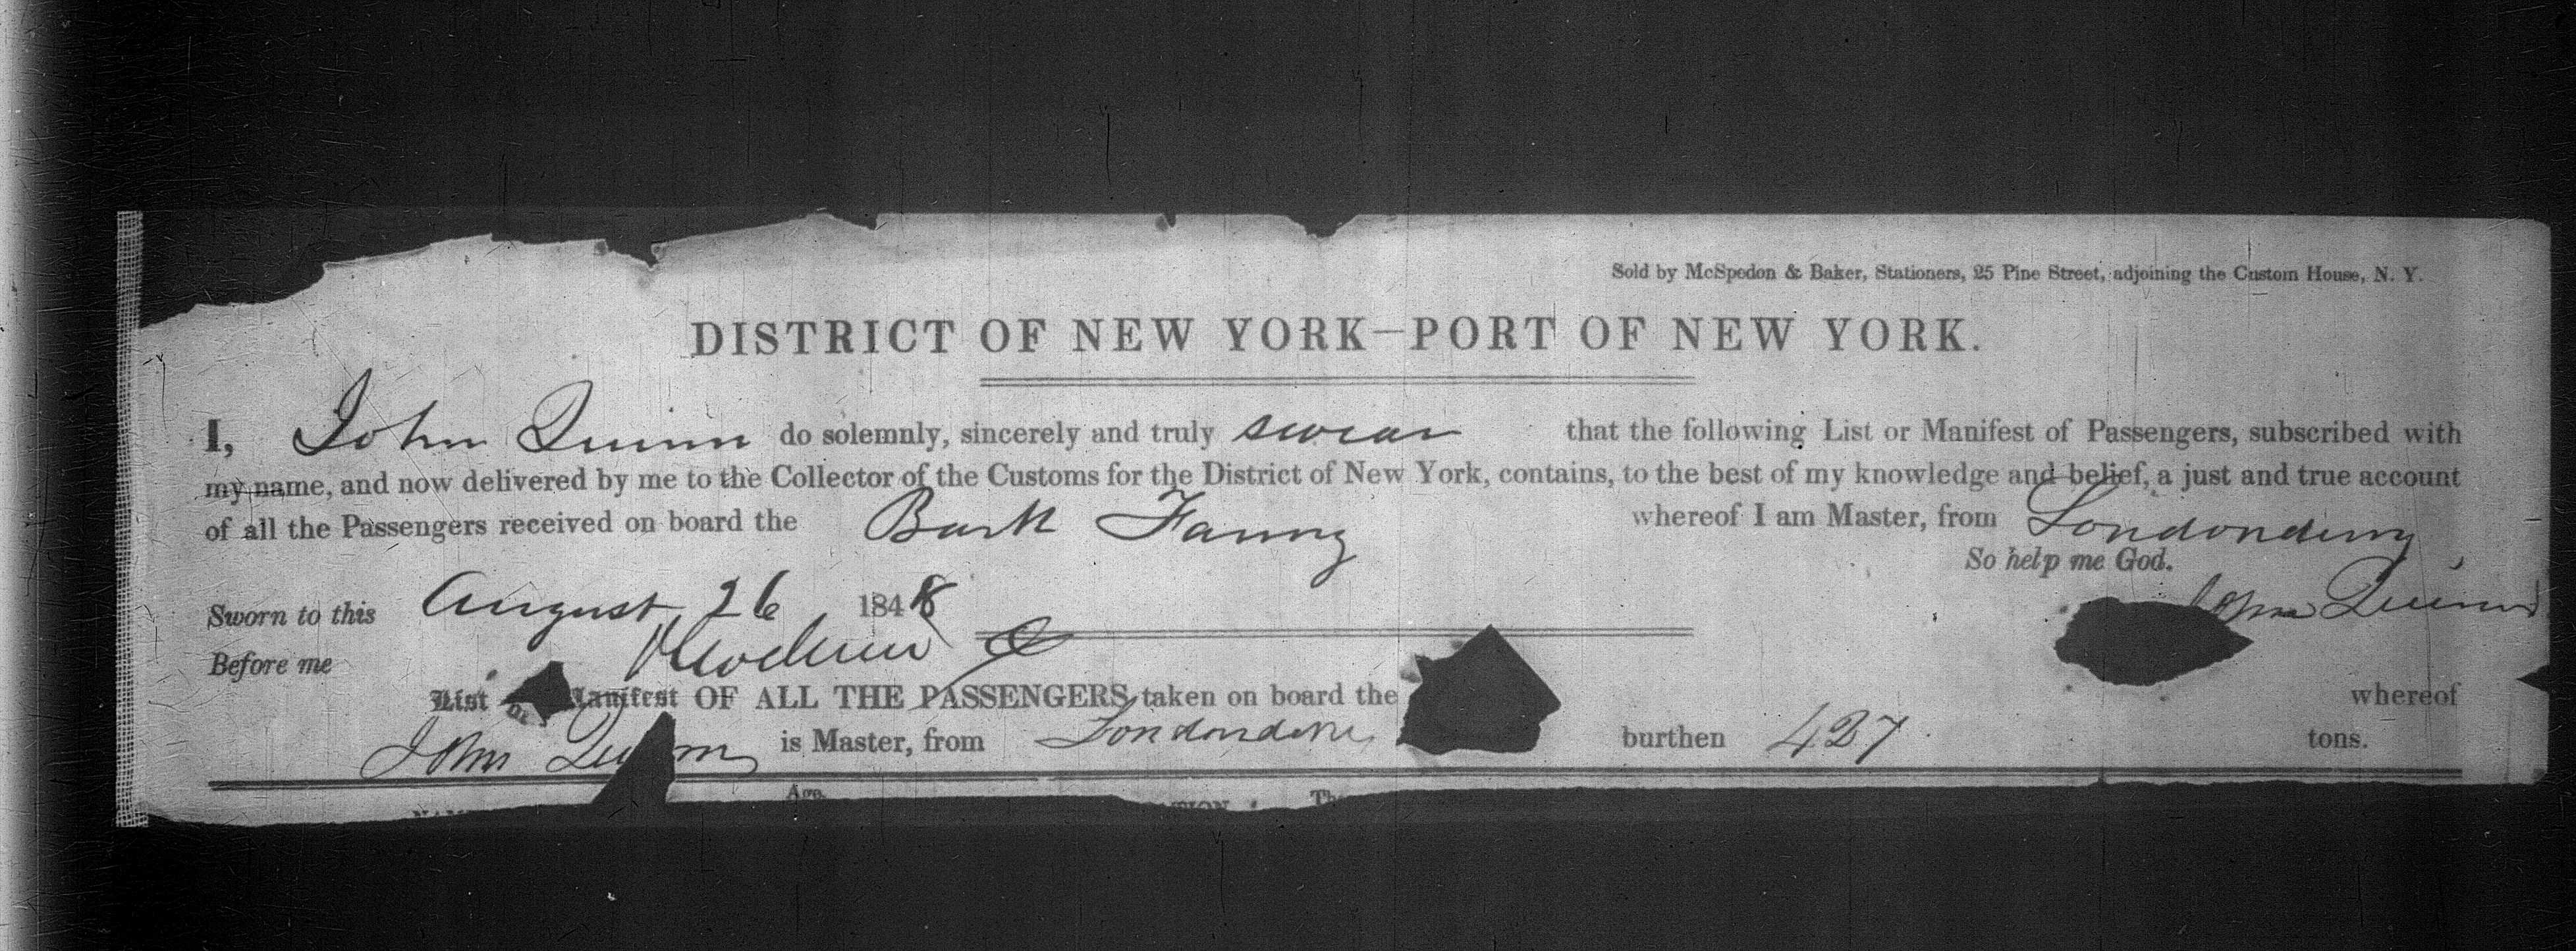 Sold by McSpedon & Baker, Stationers, 25 Pine Street, adjoining the Custom House, N. Y.
DISTRICT OF NEW YORK—PORT OF NEW YORK.
I, John Quinn do solemnly, sincerely and truly swear that the following List or Manifest of Passengers, subscribed with
my name, and now delivered by me to the Collector of the Customs for the District of New York, contains, to the best of my knowledge and belief, a just and true account
of all the Passengers received on board the Bark Fanny whereof I am Master, from Londonderry
So help me God.
Sworn to this August 26 1848 John Quinn
Before me
List or Manifest OF ALL THE PASSENGERS taken on board the whereof
John Quinn is Master, from Londonderry burthen 427 tons.
Age.